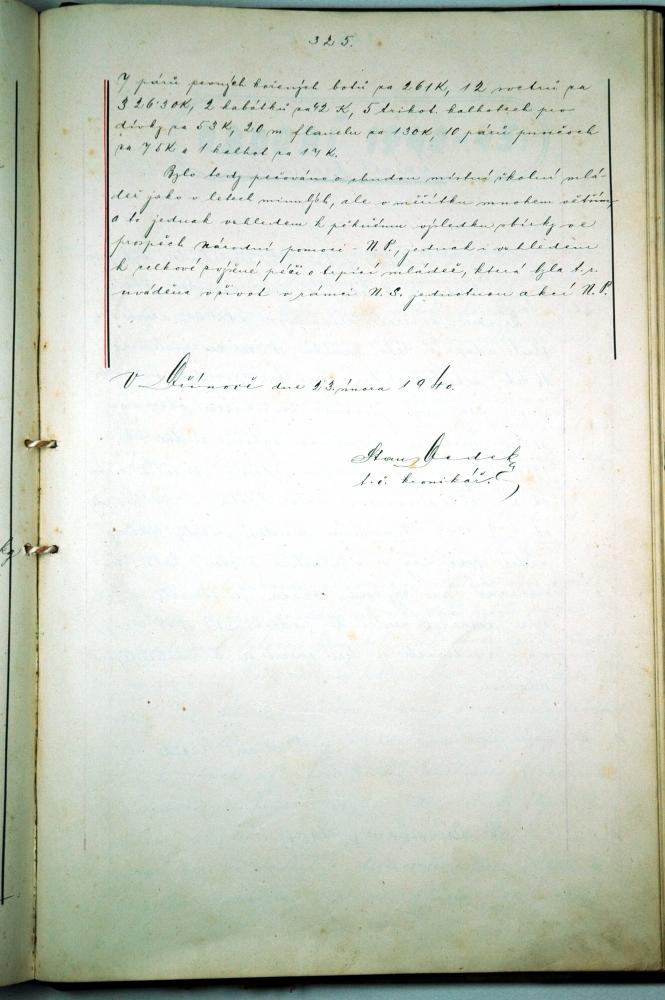 325.
7 párů pevných kožených botů za 261K, 12 svetrů za
326·30K, 2 kabátků za 42 K, 5 trikot. kalhotech pro
dívky za 53K, 20 m flanelu za 130K, 10 párů punčoch
za 75K a 1 kalhot za 17K.
Bylo tedy pečováno o chudou místní školní mlá-
dež jako v letech minulých, ale v měřítku mnohem větším,
a to jednak vzhledem k pěknému výsledku sbírky ve
prospěch Národní pomoci - N.P., jednak i vzhledem
k celkově zvýšené péči o trpící mládež, která byla t.r.
uváděna v život v rámci N.S. jednotnou akcí N.P.
V dne 23. února 1940.
Stan.
t.č. kronikář.